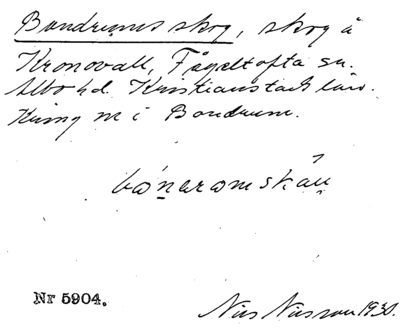 Bondrums skog, skog å
Kronovall, Fågeltofta sn.
Albo hd. Kristianstads län.
Kring m i Bondrum.
Nr 5904.
Nils Nilsson 1930.